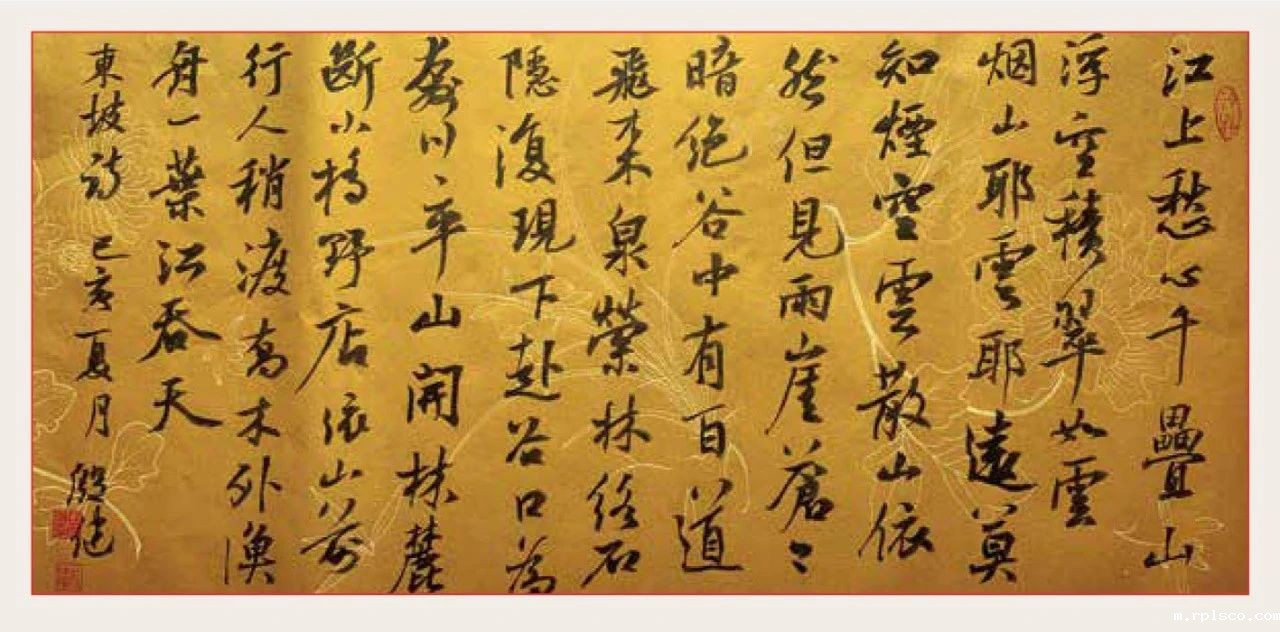 江上愁心千疊山
浮空積翠如雲
烟山耶雲耶遠莫
知煙空雲散山依
然但見兩崖蒼〻
暗絶谷中有百道
飛來泉縈林絡石
隱復現下赴谷口為
奔川〻平山開林麓
斷小橋野店依山前
行人稍渡喬木外漁
舟一葉江吞天
東坡詩 己亥夏月
m.rplsco.com